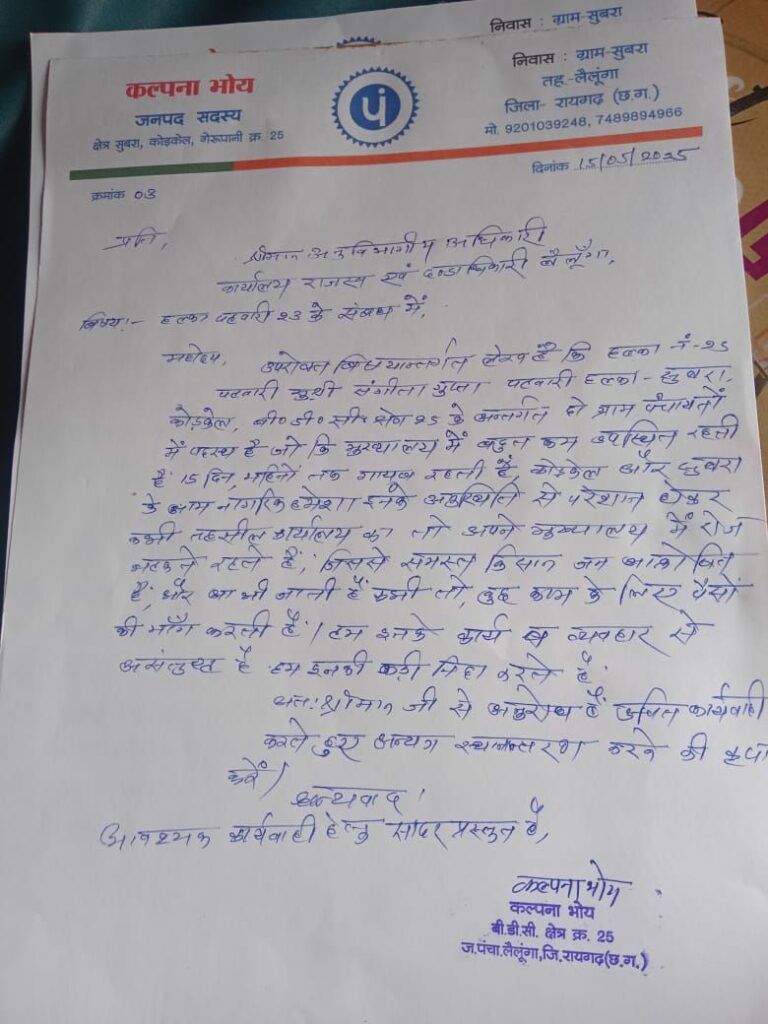 निवास : ग्राम-सुबरा
कल्पना भोय
जनपद सदस्य
क्षेत्र सुबरा, कोइकेल, गेरूपानी क्र. 25
पं
निवास : ग्राम-सुबरा
तह.-लैलूंगा
जिला- रायगढ़ (छ.ग.)
मो. 9201039248, 7489894966
दिनांक 15/05/2025
क्रमांक 03
प्रति,
श्रीमान अनुविभागीय अधिकारी
कार्यालय राजस्व एवं दण्डाधिकारी लैलूँगा,
विषय:- हल्का पटवारी 23 के संबंध में,
महोदय,
उपरोक्त विषयान्तर्गत लेख है कि हल्का नं-25
पटवारी सुश्री संगीता गुप्ता पटवारी हल्का - सुबरा,
कोइकेल, बी० डी० सी० क्षेत्र 25 के अन्तर्गत दो ग्राम पंचायतों
में पदस्थ है जो कि मुख्यालय में बहुत कम उपस्थित रहती
है 15 दिन, महिनों तक गायब रहती हैं कोइकेल और सुबरा
के आम नागरिक हमेशा इनके अनुपस्थिति से परेशान होकर
कभी तहसील कार्यालय का तो अपने मुख्यालय में रोज
भटकते रहते हैं, जिससे समस्त किसान जन आक्रोषित
हैं, और आ भी जाती हैं कभी तो, कुछ काम के लिए पैसों
की माँग करती हैं। हम इनके कार्य व्यवहार से
असंतुष्ट है हम इनकी कड़ी निंदा करते हैं
अतः श्रीमान जी से अनुरोध हैं उचित कार्यवाही
करते हुए अन्यत्र स्थानान्तरण करने की कृपा
करें।
धन्यवाद।
आवश्यक कार्यवाही हेतु सादर प्रस्तुत है,
कल्पना भोय
कल्पना भोय
बी.डी.सी. क्षेत्र क्र. 25
ज.पंचा.लैलूंगा,जि.रायगढ़(छ.ग.)